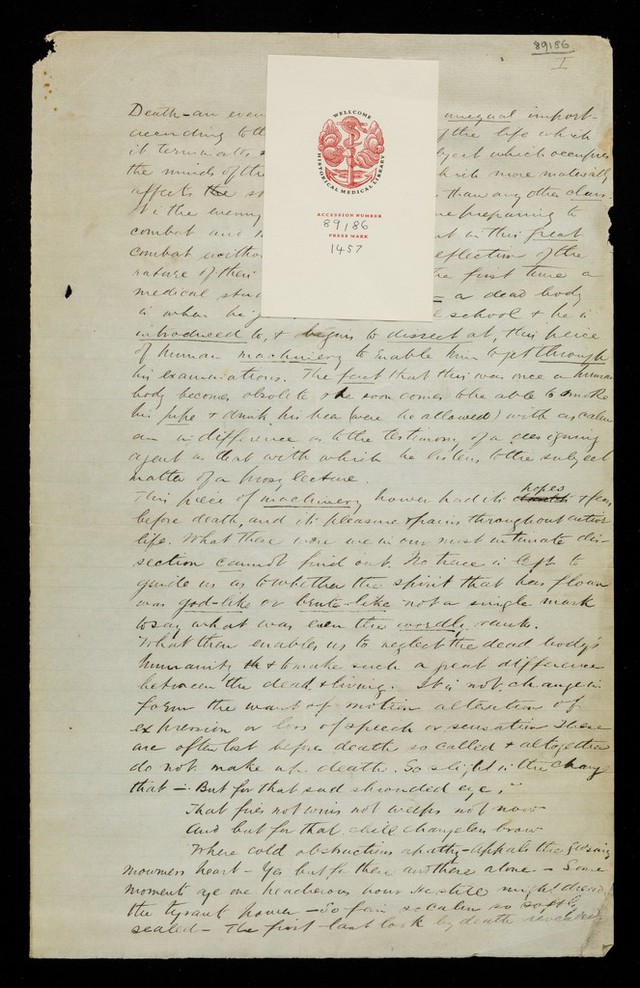 89186
I
WELLCOME
HISTORICAL MEDICAL LIBRARY
ACCESSION NUMBER
89186
PRESS MARK
1457
Death - an even unequal import-
according to th of the life which
it terminates subject which occupies
the minds of th which more materially
affects the than any other class.
the enemy preparing to
combat and in this great
combat without reflection of the
nature of their the first time a
medical stud a dead body
is when he school & he is
introduced to, & begins to dissect at, this piece
of human machinery to enable him to get through
his examinations. The fact that this was once a human
body becomes obsolete & he soon comes to be able to smoke
his pipe & drink his tea (were he allowed) with as calm
an indifference as to the testimony of a designing
agent as that with which he listens to the subject
matter of a prosy lecture.
This piece of machinery however had its hopes & fears
before death, and its pleasures & pains throughout entire
life. What these were we in our most intimate dis-
section cannot find out. No trace is left to
guide us as to whether the spirit that has flown
was god-like or brute-like not a single mark
to say what was even their wordly rank.
What then enables us to neglect the dead body's
humanity & to make such a great difference
between the dead & living. It is not change in
form the want of motion alteration of
expression or loss of speech or sensation these
are often lost before death so called & altogether
do not make up death. So slight is the change
that - But for that sad shrouded eye,
That fires not wins not weeps not now
And but for that chill changeless brow
Where cold obstructions apathy - appals the gazing
mourners heart - Yes but for these and these alone - Some
moments aye one treacherous hour He still might doubt
the tyrants power - So fair so calm so softly
sealed - The first - last look by death revealed